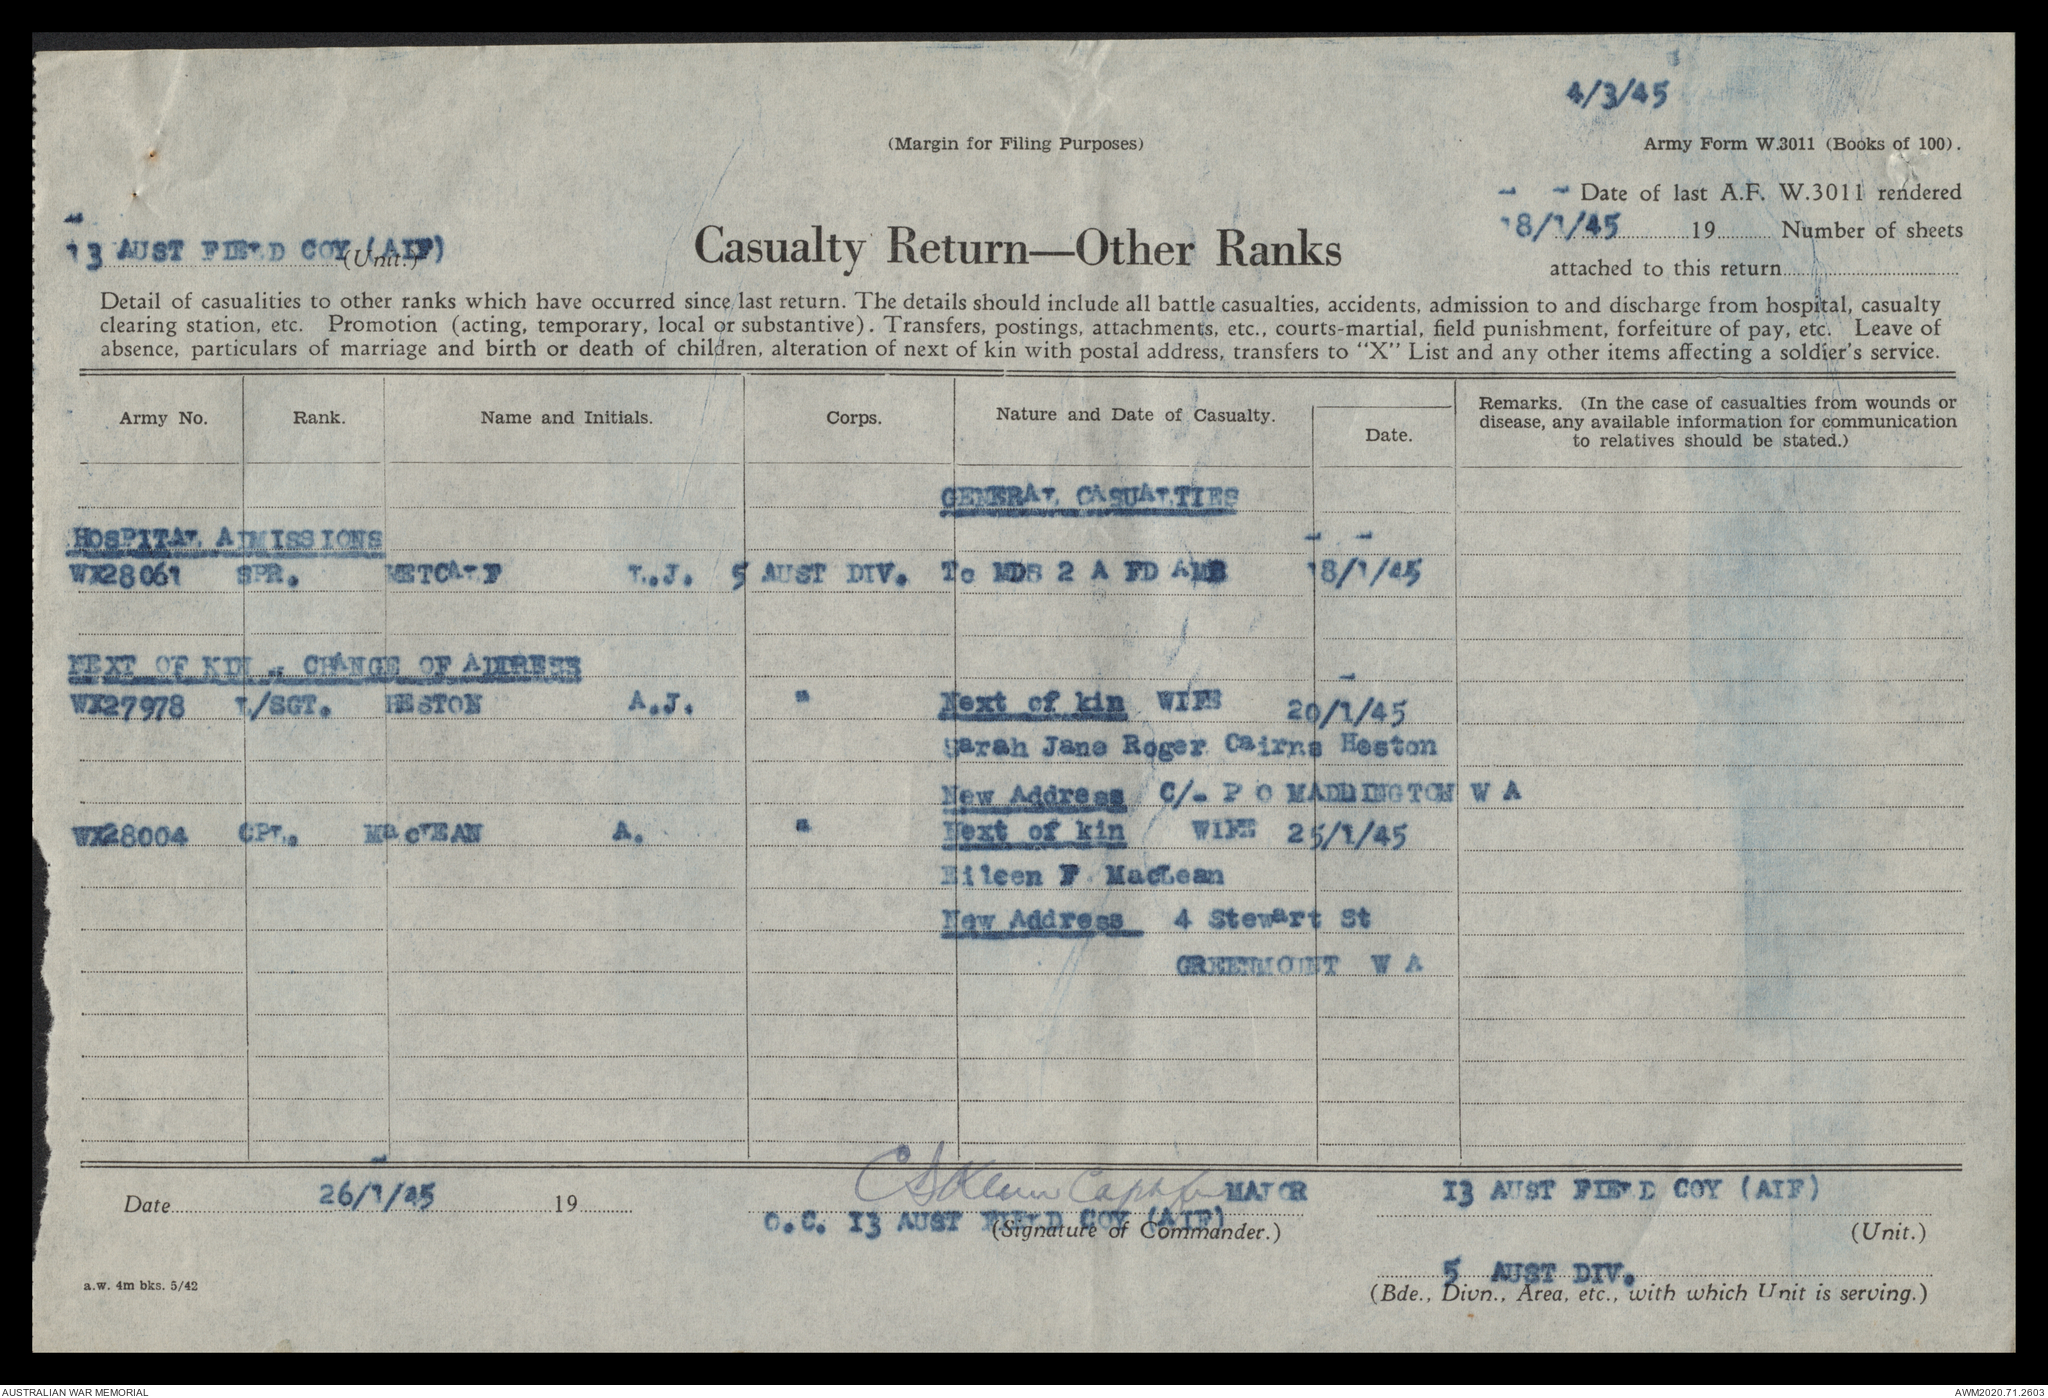 4/3/45
(Margin for Filing Purposes)
Army Form W.3011 (Books of 100).
Date of last A.F. W.3011 rendered
18/1/45 19 Number of sheets
attached to this return
13 AUST FIELD COY (AIF)
(Unit.)
Casualty Return—Other Ranks
Detail of casualities to other ranks which have occurred since last return. The details should include all battle casualties, accidents, admission to and discharge from hospital, casualty
clearing station, etc. Promotion (acting, temporary, local or substantive). Transfers, postings, attachments, etc., courts-martial, field punishment, forfeiture of pay, etc. Leave of
absence, particulars of marriage and birth or death of children, alteration of next of kin with postal address, transfers to "X" List and any other items affecting a soldier's service.
Army No. Rank. Name and Initials. Corps. Nature and Date of Casualty. Date.
Remarks. (In the case of casualties from wounds or
disease, any available information for communication
to relatives should be stated.)
GENERAL CASUALTIES
HOSPITAL ADMISSIONS
WX28061 SPR. METCALF L.J. 5 AUST DIV. To MDS 2 A FD AMB 18/1/45
NEXT OF KIN - CHANGE OF ADDRESS
WX27978 L/SGT. HESTON A.J. " Next of kin WIFE 20/1/45
Sarah Jane Roger Cairns Heston
New Address C/- P O MADDINGTON W A
WX28004 CPL. MacLEAN A. " Next of kin WIFE 25/1/45
Eileen F MacLean
New Address 4 Stewart St
GREENMOUNT W A
Date 26/1/45 19
Capt for MAJOR
O.C. 13 AUST FIELD COY (AIF)
(Signature of Commander.)
13 AUST FIELD COY (AIF)
(Unit.)
5 AUST DIV.
(Bde., Divn., Area, etc., with which Unit is serving.)
a.w. 4m bks. 5/42
AUSTRALIAN WAR MEMORIAL
AWM2020.71.2603